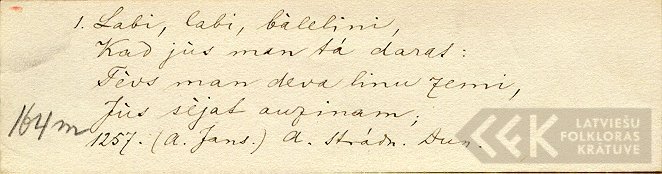 1. Labi, labi, bālelini,
Kad jūs man tā darat:
Tēvs man deva linu zemi,
Jūs sējat auzinam;
164m
1257. (A. Jans.) A. strādn. Dun.
LATVIEŠU
FOLKLORAS
KRĀTUVE